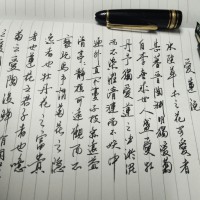 愛蓮說
水陸草木之花可愛者
甚蕃晉陶淵明獨愛菊
自李唐來世人盛愛牡
丹予獨愛蓮之出淤泥
而不染濯清漣而不妖中
通外直不蔓不枝香遠益
清亭亭靜植可遠觀而不
可褻玩焉予謂菊花之隱
逸者也牡丹花之富貴
者也蓮花之君子者也噫
菊之愛陶後鮮有聞